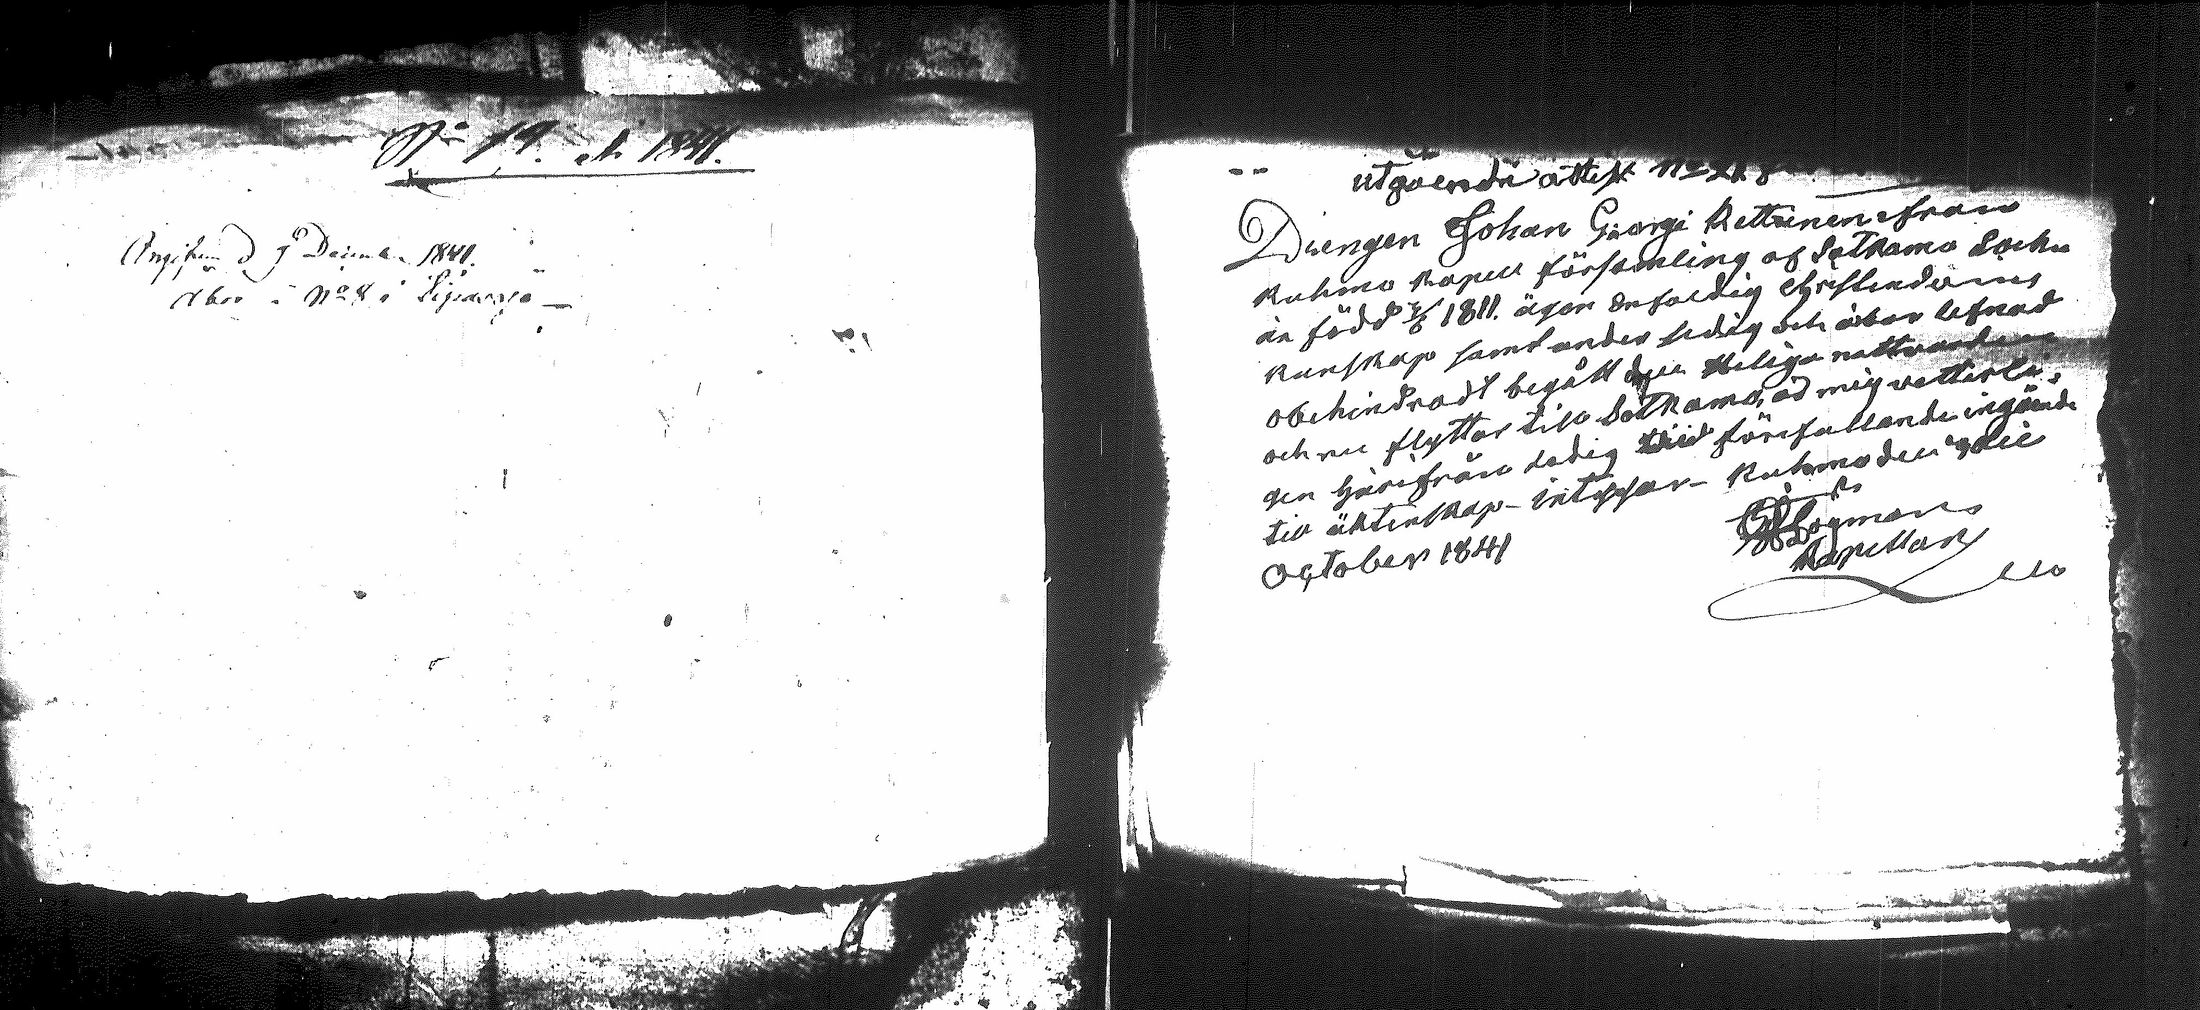 No 19. år 1841.
Angifven d 9 December 1841.
Abor i No 8 i
utgående attest No
Drengen Johan Georgi Kettunen ifrån
Kuhmo Kapell församling af Sotkamo Sockn
är född 1811. äger enfaldig christendoms
kunskap samt under sedig och ärbar lefnad
obehindradt begått den Heliga nattvarden
och nu flyttar till Sotkamo, åd mig vetterli-
gen härifrån ledig till förefallande ingående
till äktenskap intygar Kuhmo den
October 1841
Kapellan